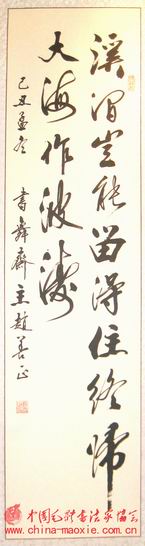 溪涧岂能留得住终归
大海作波涛
己丑孟冬 书舞斋主赵善正
中国毛体书法家协会
www.china-maoxie.com.cn